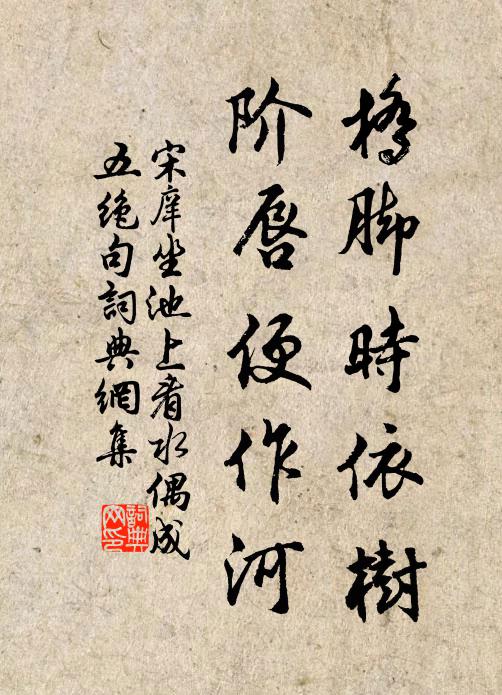 橋脚時依樹
阶唇便作河
宋庠坐池上看水偶成
五绝句詞典網集
詞典
网印